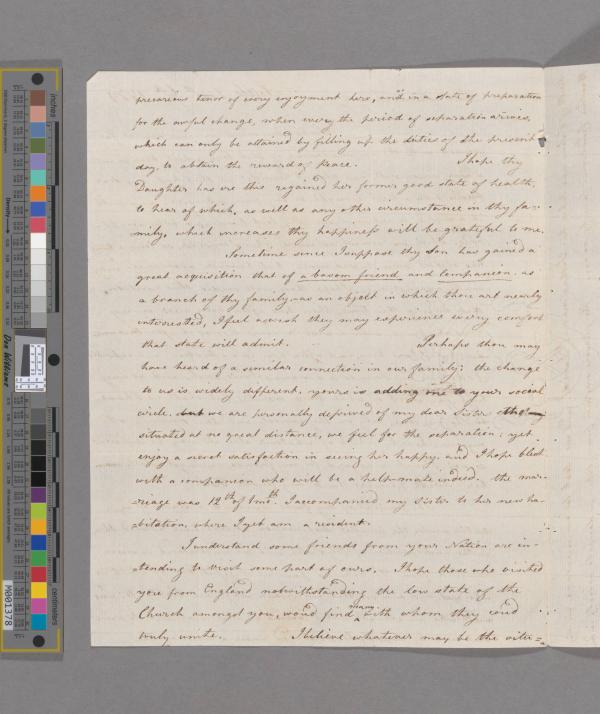 precarious tenor of every enjoyment here, and in a state of preparation
for the awful change, when every the period of separation arrives,
which can only be attained by filling up the duties of the present
day, to obtain the reward of Peace. I hope thy
Daughter has ere this regained her former good state of health,
to hear of which, as well as any other circumstance in thy fa-
mily, which increases thy happiness will be grateful to me.
Sometime since I suppose thy Son has gained a
great acquisition that of a bosom friend and Companion. as
a branch of thy family as an object in which thou art nearly
interested, I feel a wish they may experience every comfort
that state will admit. Perhaps thou may
have heard of a similar connection in our family; the change
to us is widely different. yours is adding one to your social
circle. but we are personally deprived of my dear Sister
situated at no great distance, we feel for the separation; yet
enjoy a secret satisfaction in seeing her happy, and I hope blest
with a companion who will be a help-mate indeed. the mar-
riage was 12th of 1mo. I accompanied my Sister to her new ha-
bitation, where I yet am a resident.
I understand some friends from your Nation are in-
tending to visit some part of ours. I hope those who visited
you from England notwithstanding the low state of the
Church amongst you, would find many with whom they could
truly unite. I believe whatever may be the
inches
centimeters
Density
Don Williams
M001378